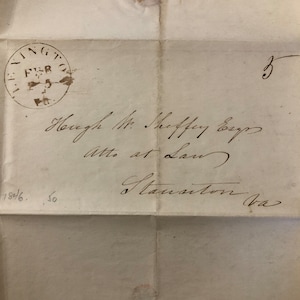 LEXINGTON
FEB
5
5
Hugh W. Sheffey Esqr
Atto at Law
Staunton
Va
1846. 50